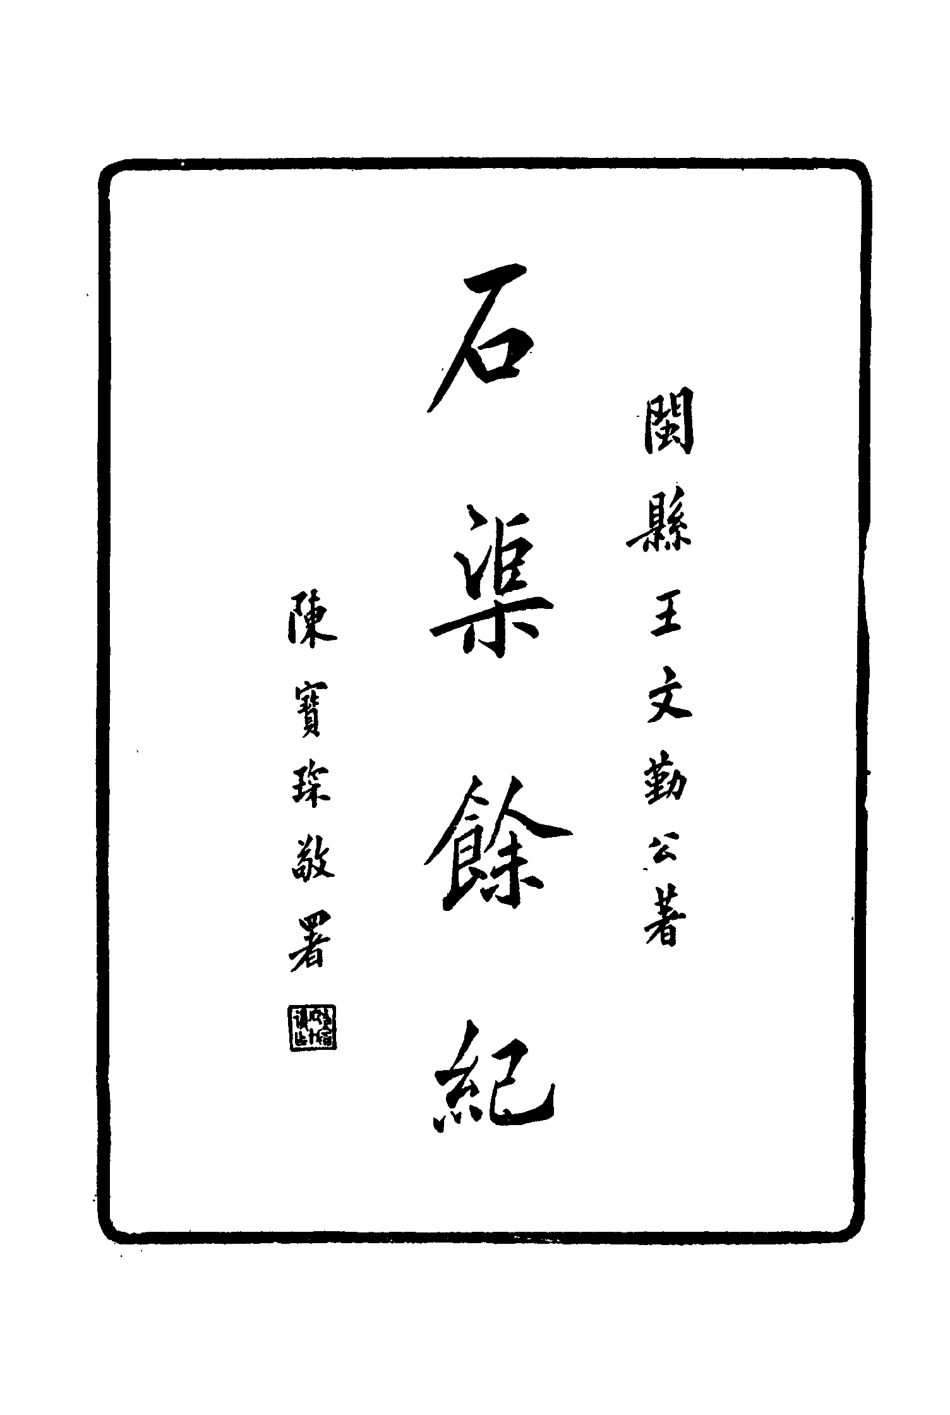 閩縣王文勤公著
石渠餘紀
陳寶琛敬署